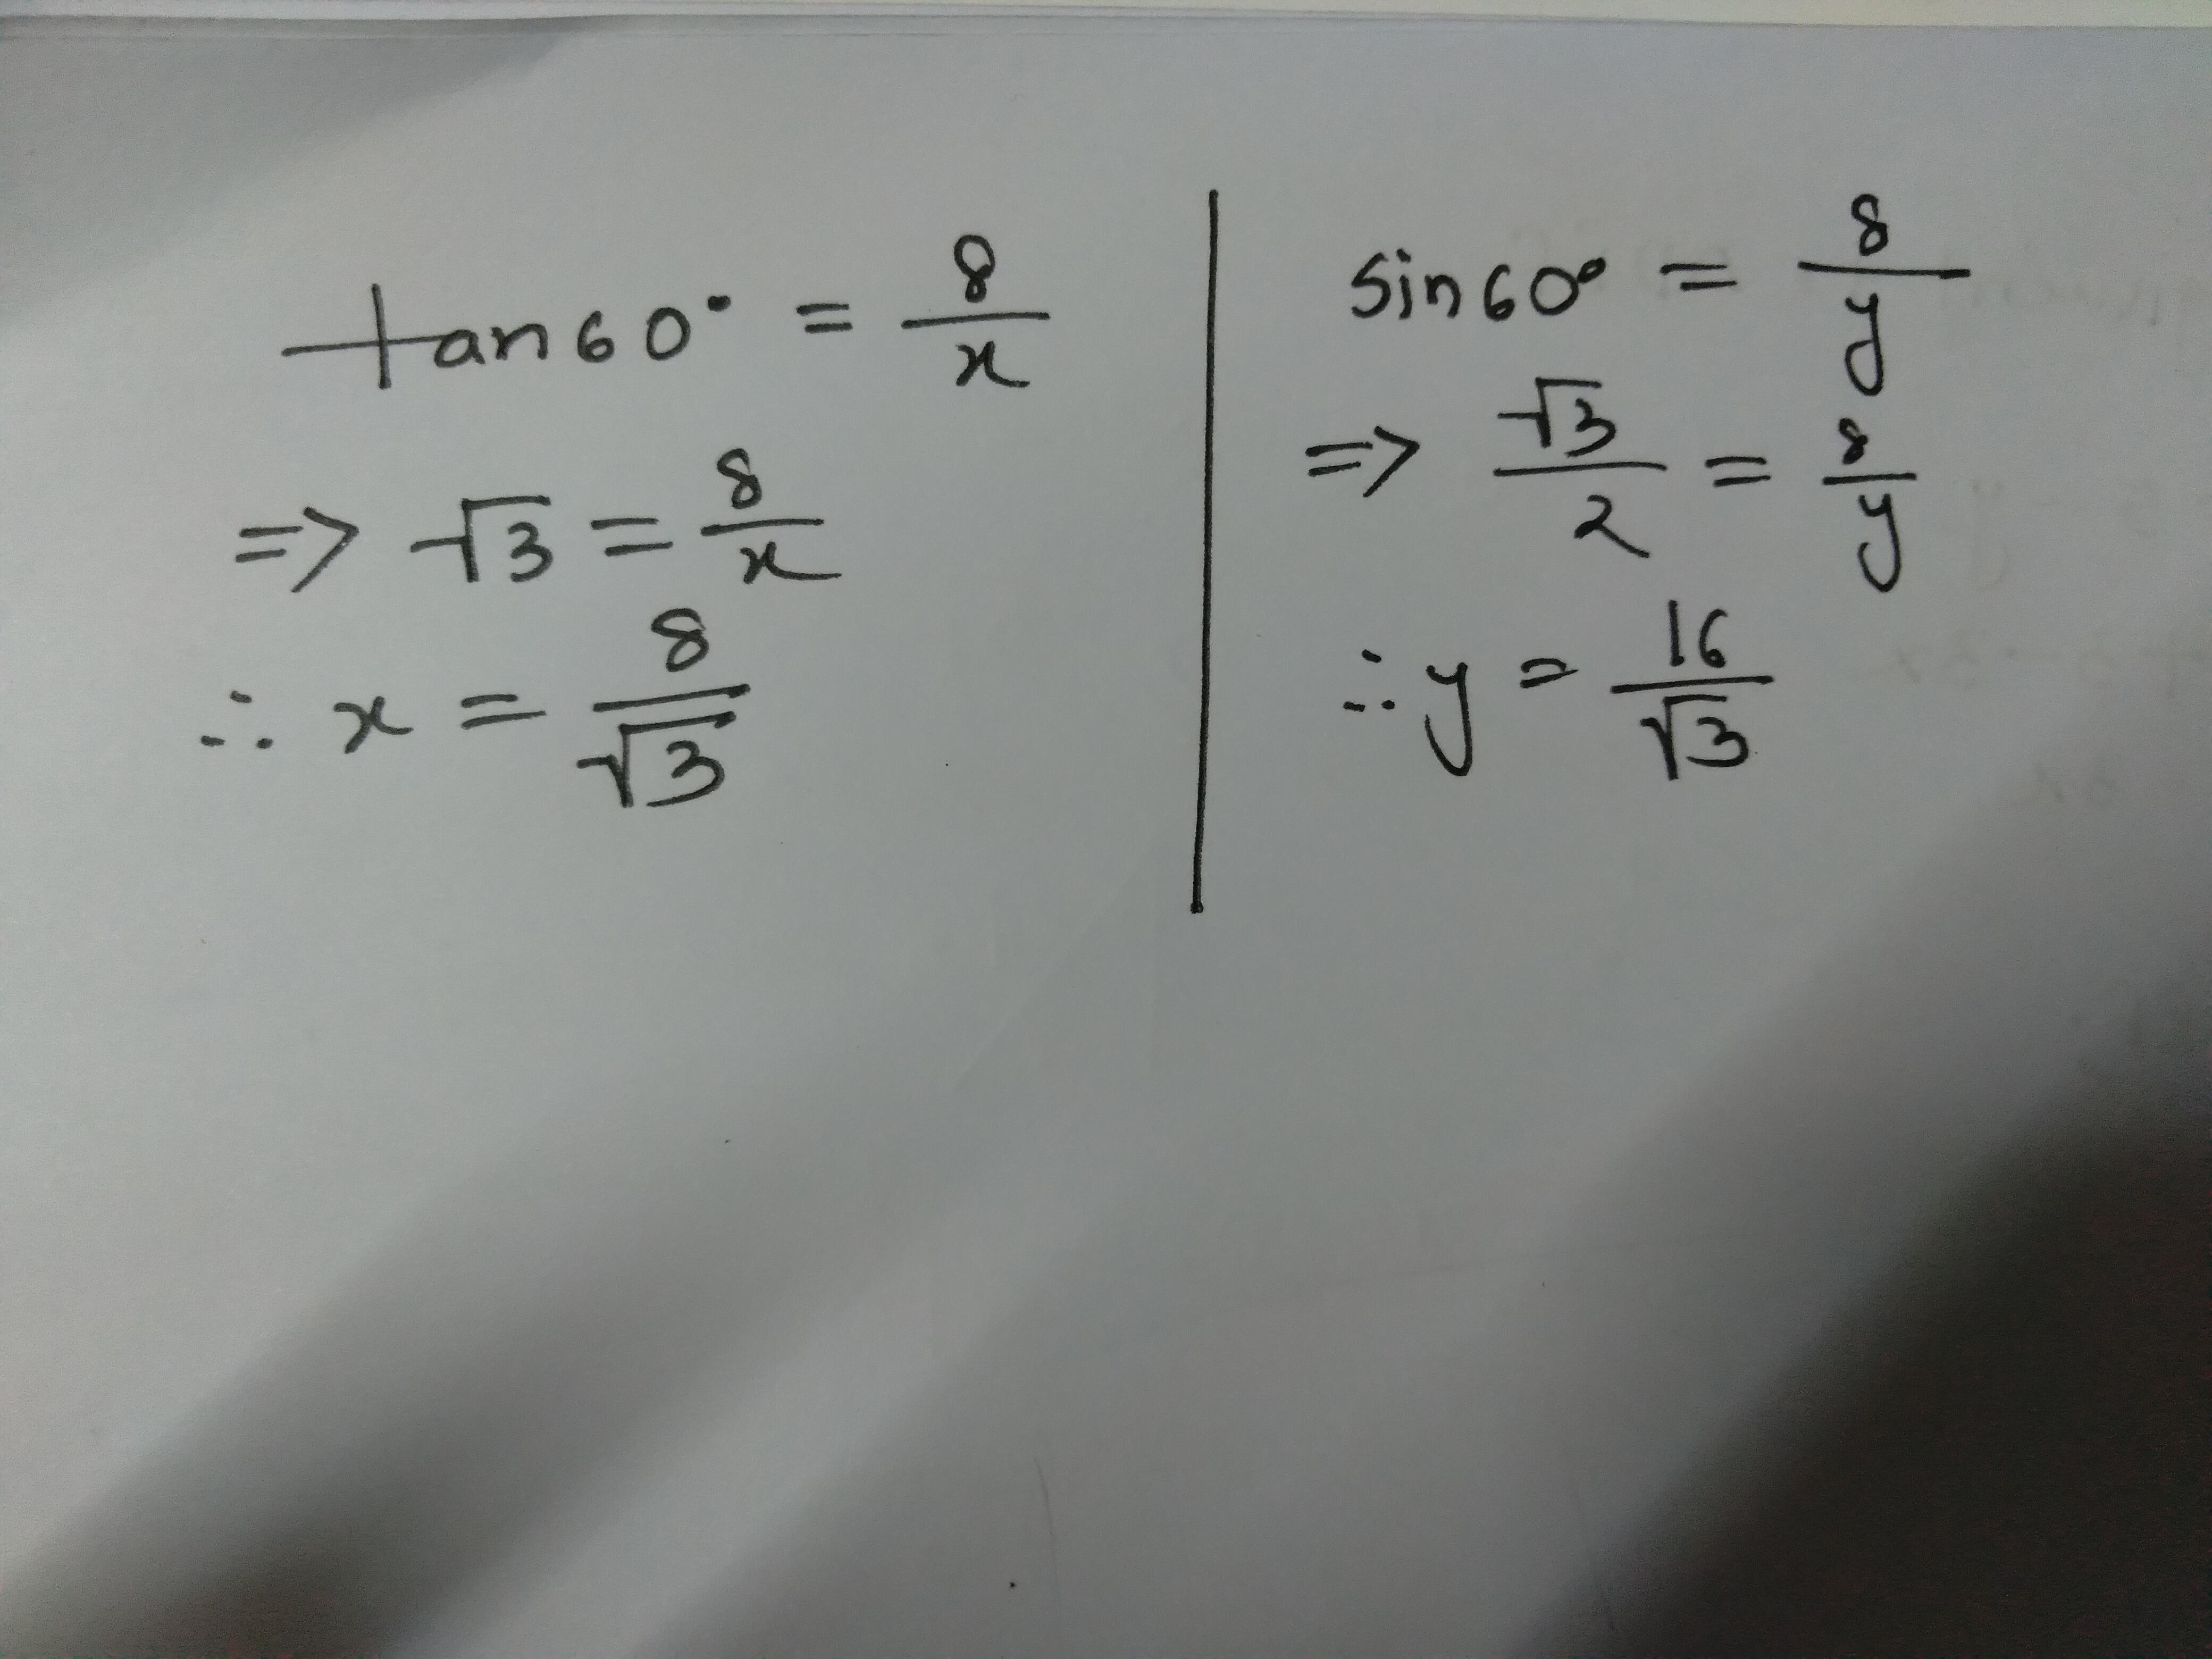 tan60° = 8/x
=> √3 = 8/x
∴ x = 8/√3
Sin60° = 8/y
=> √3/2 = 8/y
∴ y = 16/√3